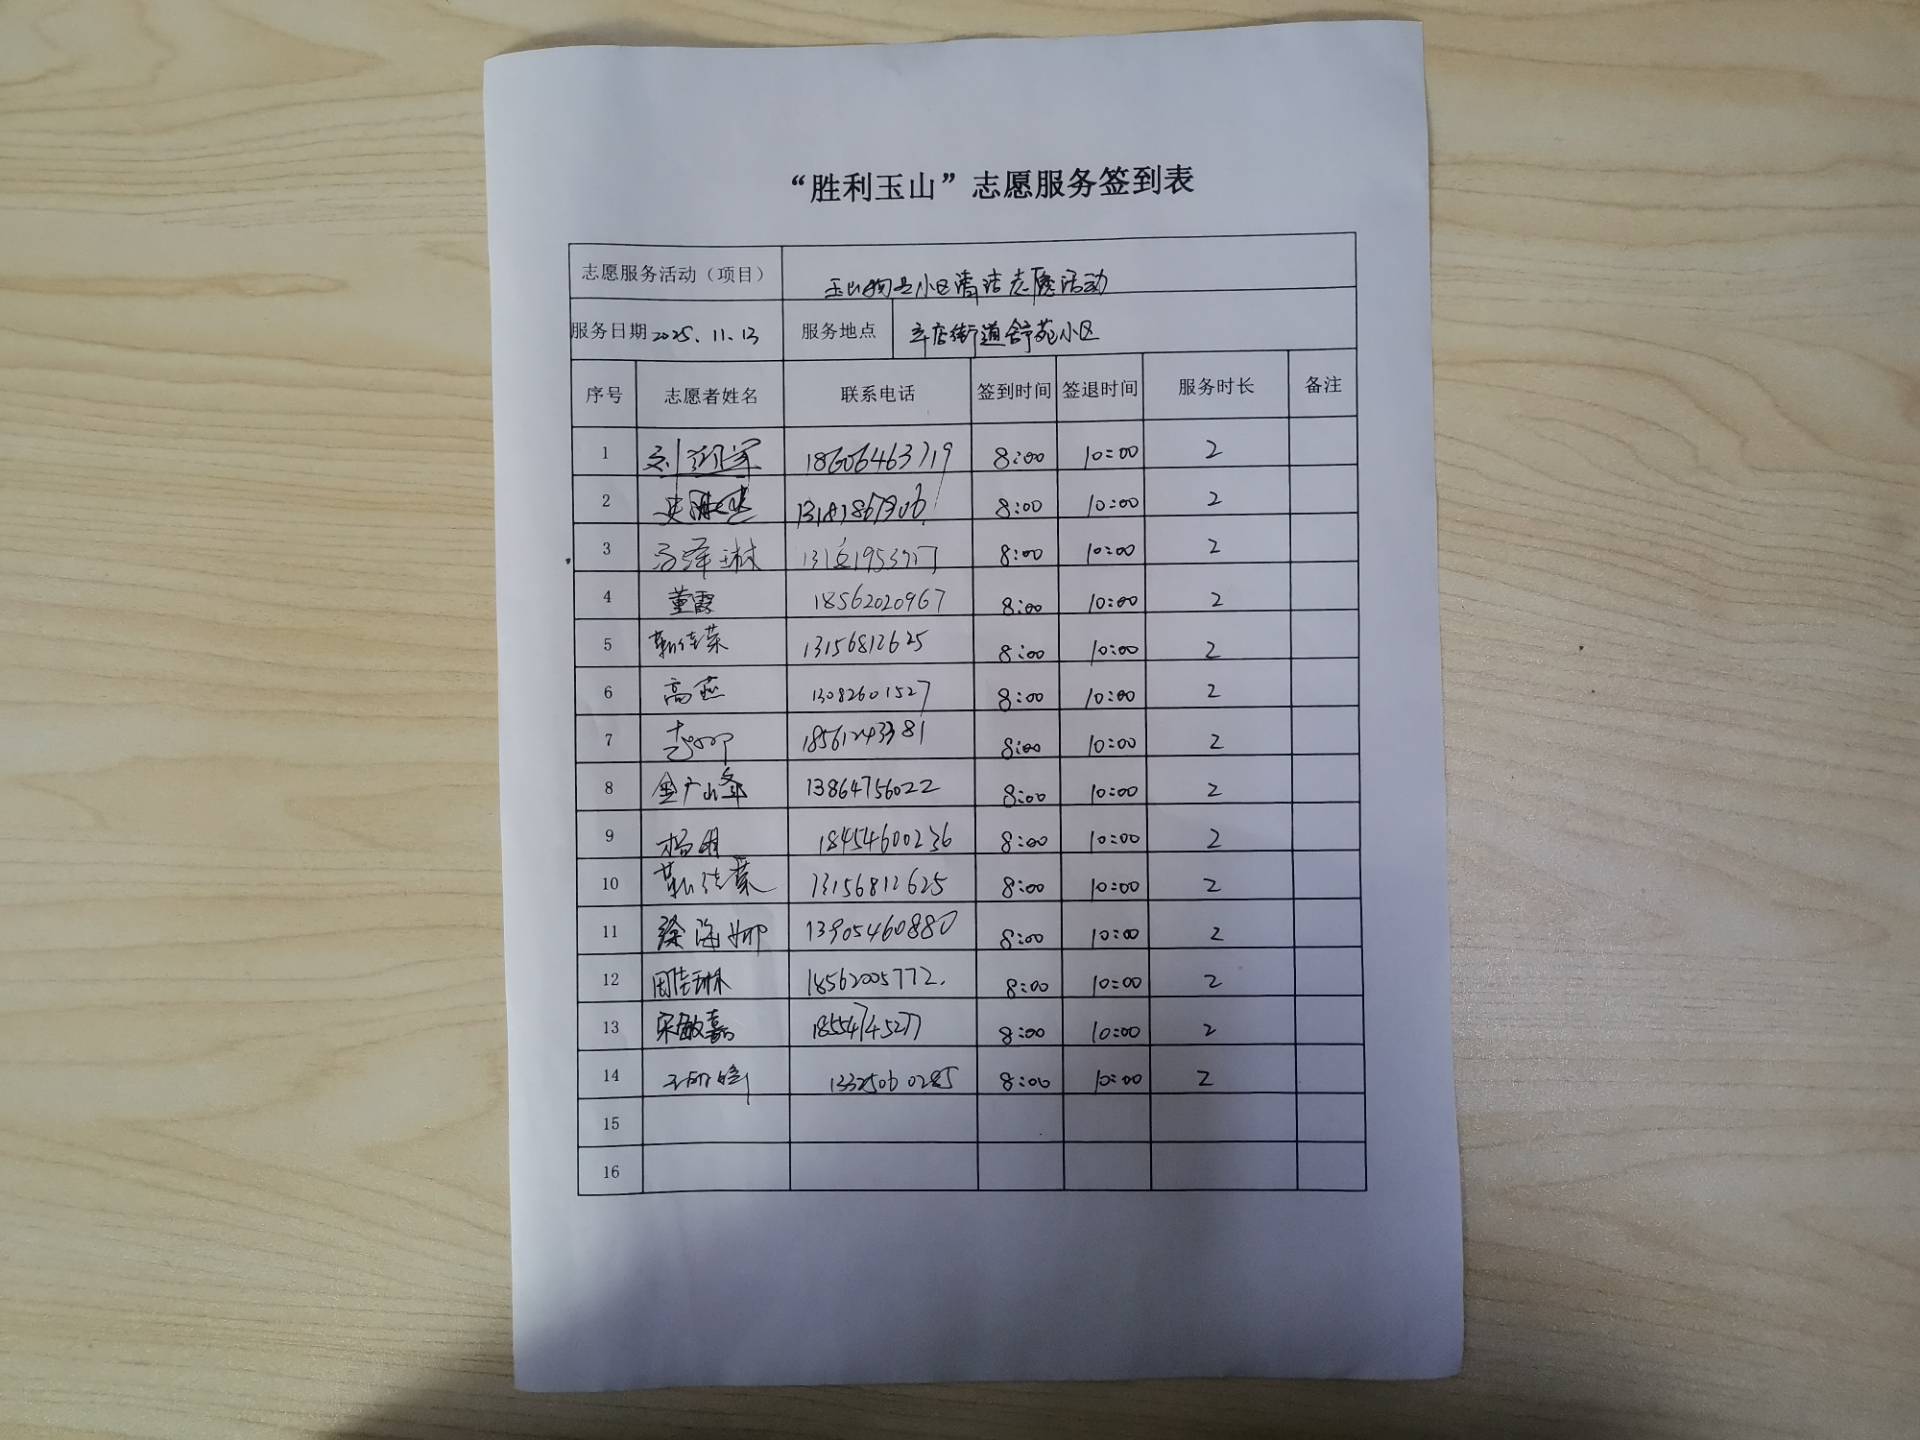 “胜利玉山”志愿服务签到表
志愿服务活动（项目） 玉山物业小区清洁志愿活动
服务日期 2025.11.13 服务地点 辛店街道舒苑小区
序号 志愿者姓名 联系电话 签到时间 签退时间 服务时长 备注
1 18606463719 8:00 10:00 2
2 8:00 10:00 2
3 8:00 10:00 2
4 董霞 18562020967 8:00 10:00 2
5 靳佳荣 13156812625 8:00 10:00 2
6 高燕 13082601527 8:00 10:00 2
7 18561243381 8:00 10:00 2
8 金广峰 13864756022 8:00 10:00 2
9 杨明 18454600236 8:00 10:00 2
10 13156812625 8:00 10:00 2
11 徐海娜 13905460880 8:00 10:00 2
12 周佳琳 18562005772. 8:00 10:00 2
13 宋敏嘉 18554745277 8:00 10:00 2
14 13325060285 8:00 10:00 2
15
16